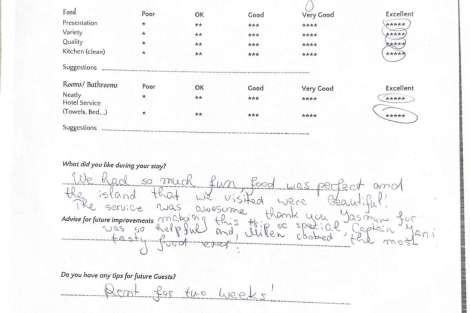 Food Poor OK Good Very Good Excellent
Presentation * ** *** **** *****
Variety * ** *** **** *****
Quality * ** *** **** *****
Kitchen (clean) * ** *** **** *****
Suggestions
Rooms/ Bathrooms Poor OK Good Very Good Excellent
Neatly * ** *** **** *****
Hotel Service
(Towels, Bed,...) * ** *** **** *****
Suggestions
What did you like during your stay?
We had so much fun, food was perfect and
the island that we visited were Beautiful!
The service was awesome thank you Yasmin for
Advise for future improvements making this trip so special, Captain Yani
was so helpful and, Milen cooked the most
tasty food ever!
Do you have any tips for future Guests?
Rent for two weeks!